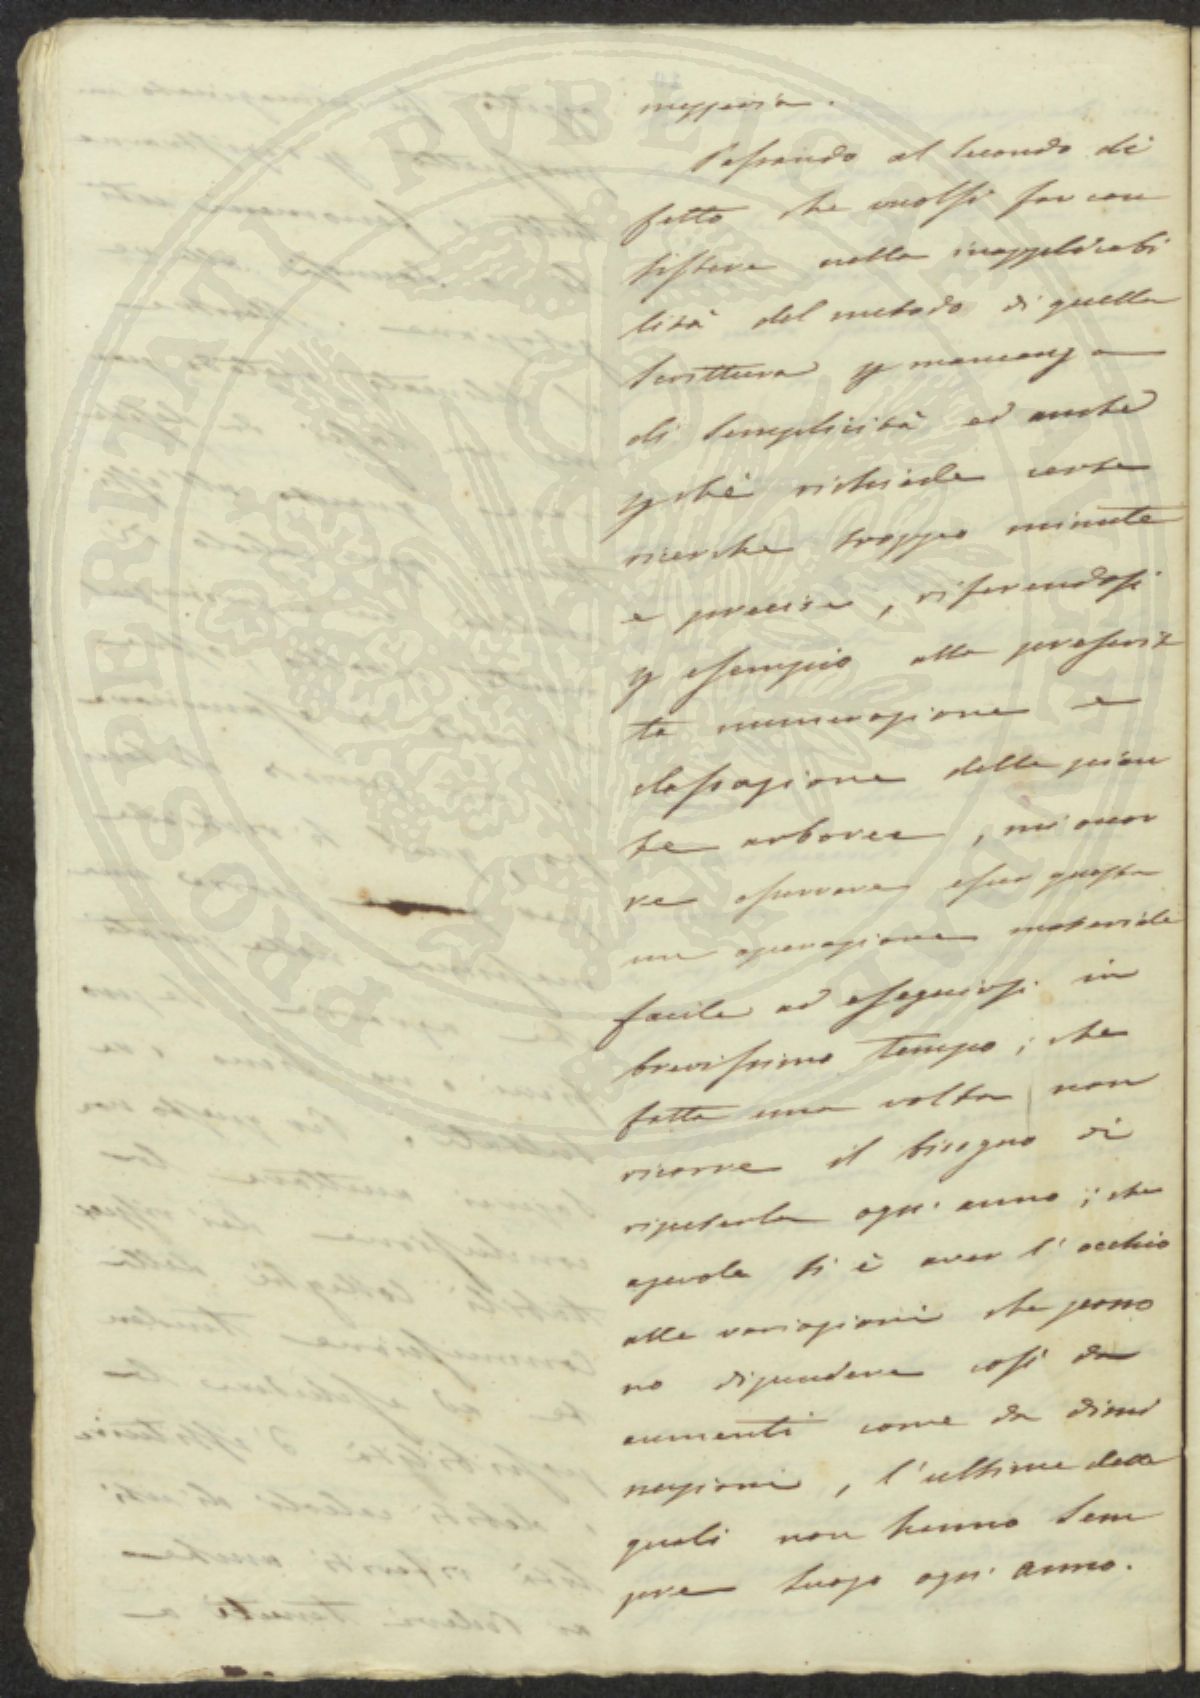 mezzeria.
Passando al secondo di
fetto che vuolsi far con
sistere nella inapplicabi
lità del metodo di quella
scrittura p mancanza
di semplicità ed anche
pchè richiede certe
ricerche troppo minute
e precise, riferendosi
p esempio alla prescrit
ta numerazione e
classazione delle pian
te arboree, mi occor
re osservare esser questa
un operazione materiale
facile ad eseguirsi in
brevissimo tempo; che
fatta una volta non
ricorre il bisogno di
ripeterla ogni anno; che
agevole si è aver l'occhio
alle variazioni che posso
no dipendere così da
aumenti come da dimi
nuzioni, l'ultime delle
quali non hanno sem
pre luogo ogni anno.
PROSPERITATI PVBLICAE